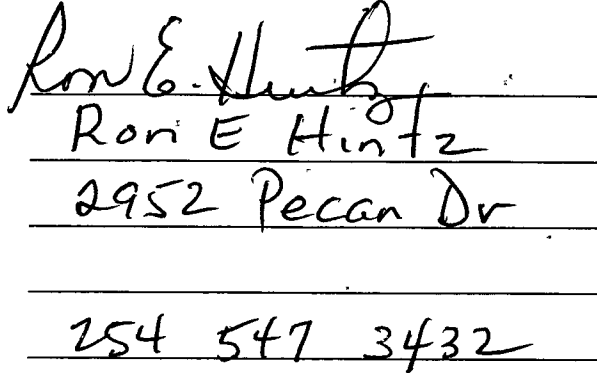 Ron E. Hintz
Ron E Hintz
2952 Pecan Dr
254 547 3432